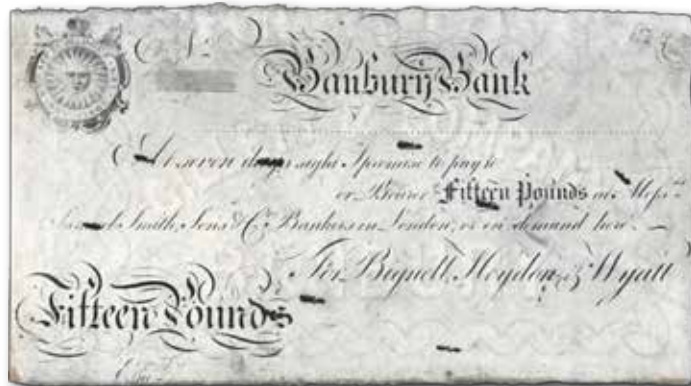 No.
Banbury Bank
At seven days sight I promise to pay to
or Bearer Fifteen Pounds at Messrs
Samuel Smith, Sons & Co. Bankers in London, or on demand here.
For Bignell, Heydon, & Wyatt
Fifteen Pounds